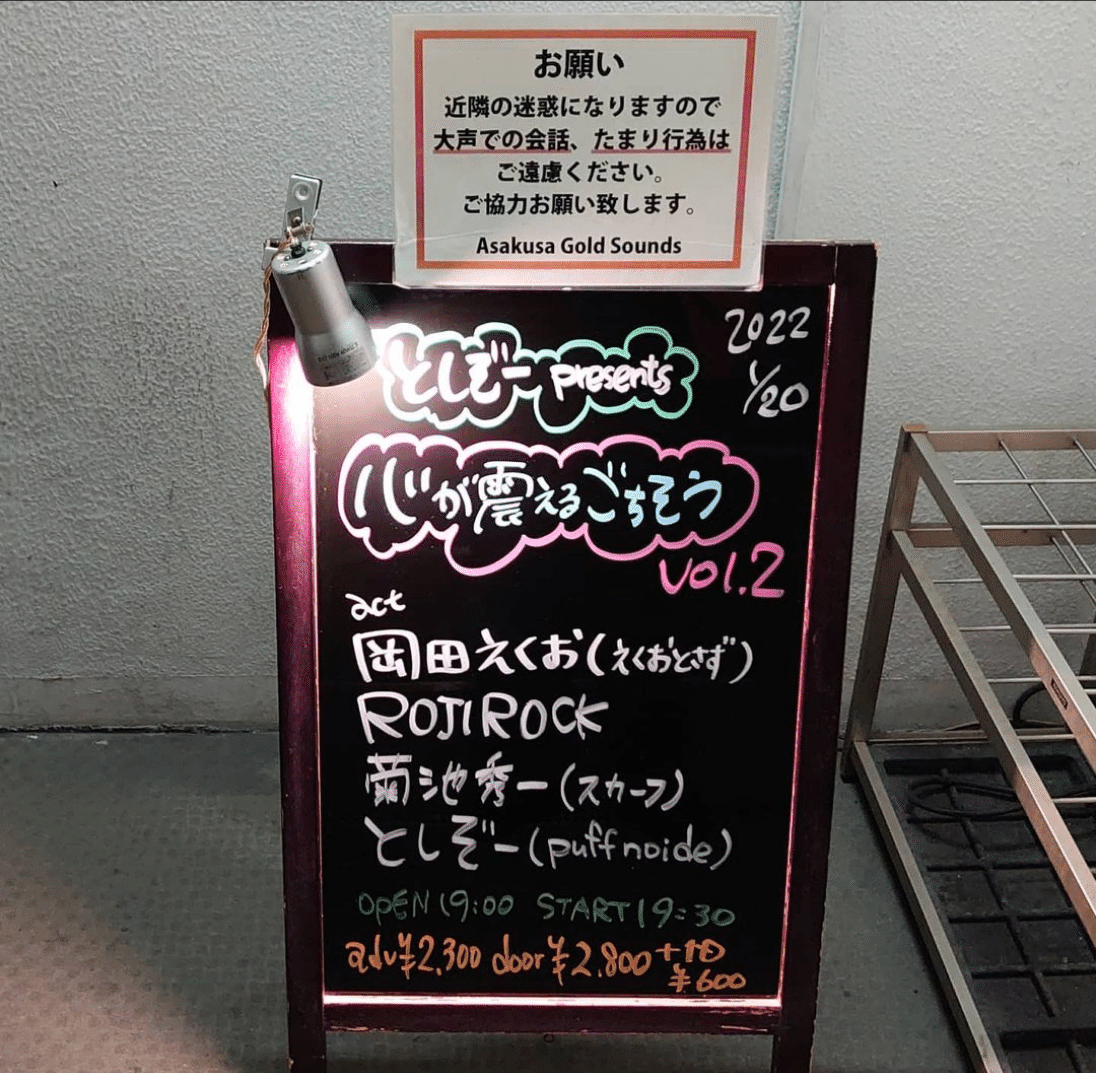 お願い
近隣の迷惑になりますので
大声での会話、たまり行為は
ご遠慮ください。
ご協力お願い致します。
Asakusa Gold Sounds
2022
1/20
としぞー presents
心が震えるごちそう
vol.2
act
岡田えくお(えくおとさず)
ROJI ROCK
菊池秀一(スカーフ)
としぞー(puff noide)
OPEN 19:00 START 19:30
adv¥2,300 door¥2,800+1D
¥600